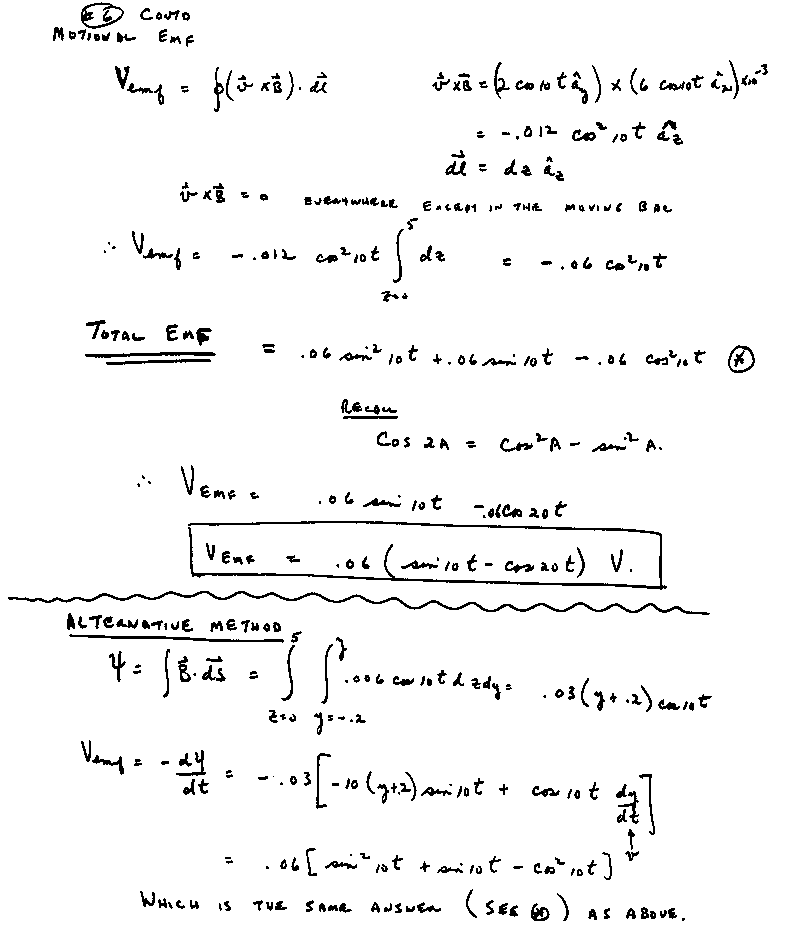 #6 CONT'D
MOTIONAL EMF
V_emf = ∮(v⃗ × B⃗) · dl⃗    v⃗ × B⃗ = (2 cos 10t â_y) × (6 cos 10t â_x) × 10⁻³
= -.012 cos² 10t â_z
dl⃗ = dz â_z
v⃗ × B⃗ = 0 EVERYWHERE EXCEPT IN THE MOVING BAR
∴ V_emf = -.012 cos² 10t ∫_{z=0}^{5} dz = -.06 cos² 10t
TOTAL EMF = .06 sin² 10t + .06 sin 10t - .06 cos² 10t ⊛
RECALL
COS 2A = COS² A - sin² A.
∴ V_EMF = .06 sin 10t -.06 cos 20t
V_EMF = .06 (sin 10t - cos 20t) V.
ALTERNATIVE METHOD
Ψ = ∫ B⃗ · ds⃗ = ∫_{z=0}^{5} ∫_{y=-.2}^{y} .006 cos 10t dz dy = .03(y + .2) cos 10t
V_emf = - dΨ/dt = -.03 [-10 (y+.2) sin 10t + cos 10t dy/dt]
↑
v
= .06 [sin² 10t + sin 10t - cos² 10t]
WHICH IS THE SAME ANSWER (SEE ⊛) AS ABOVE.